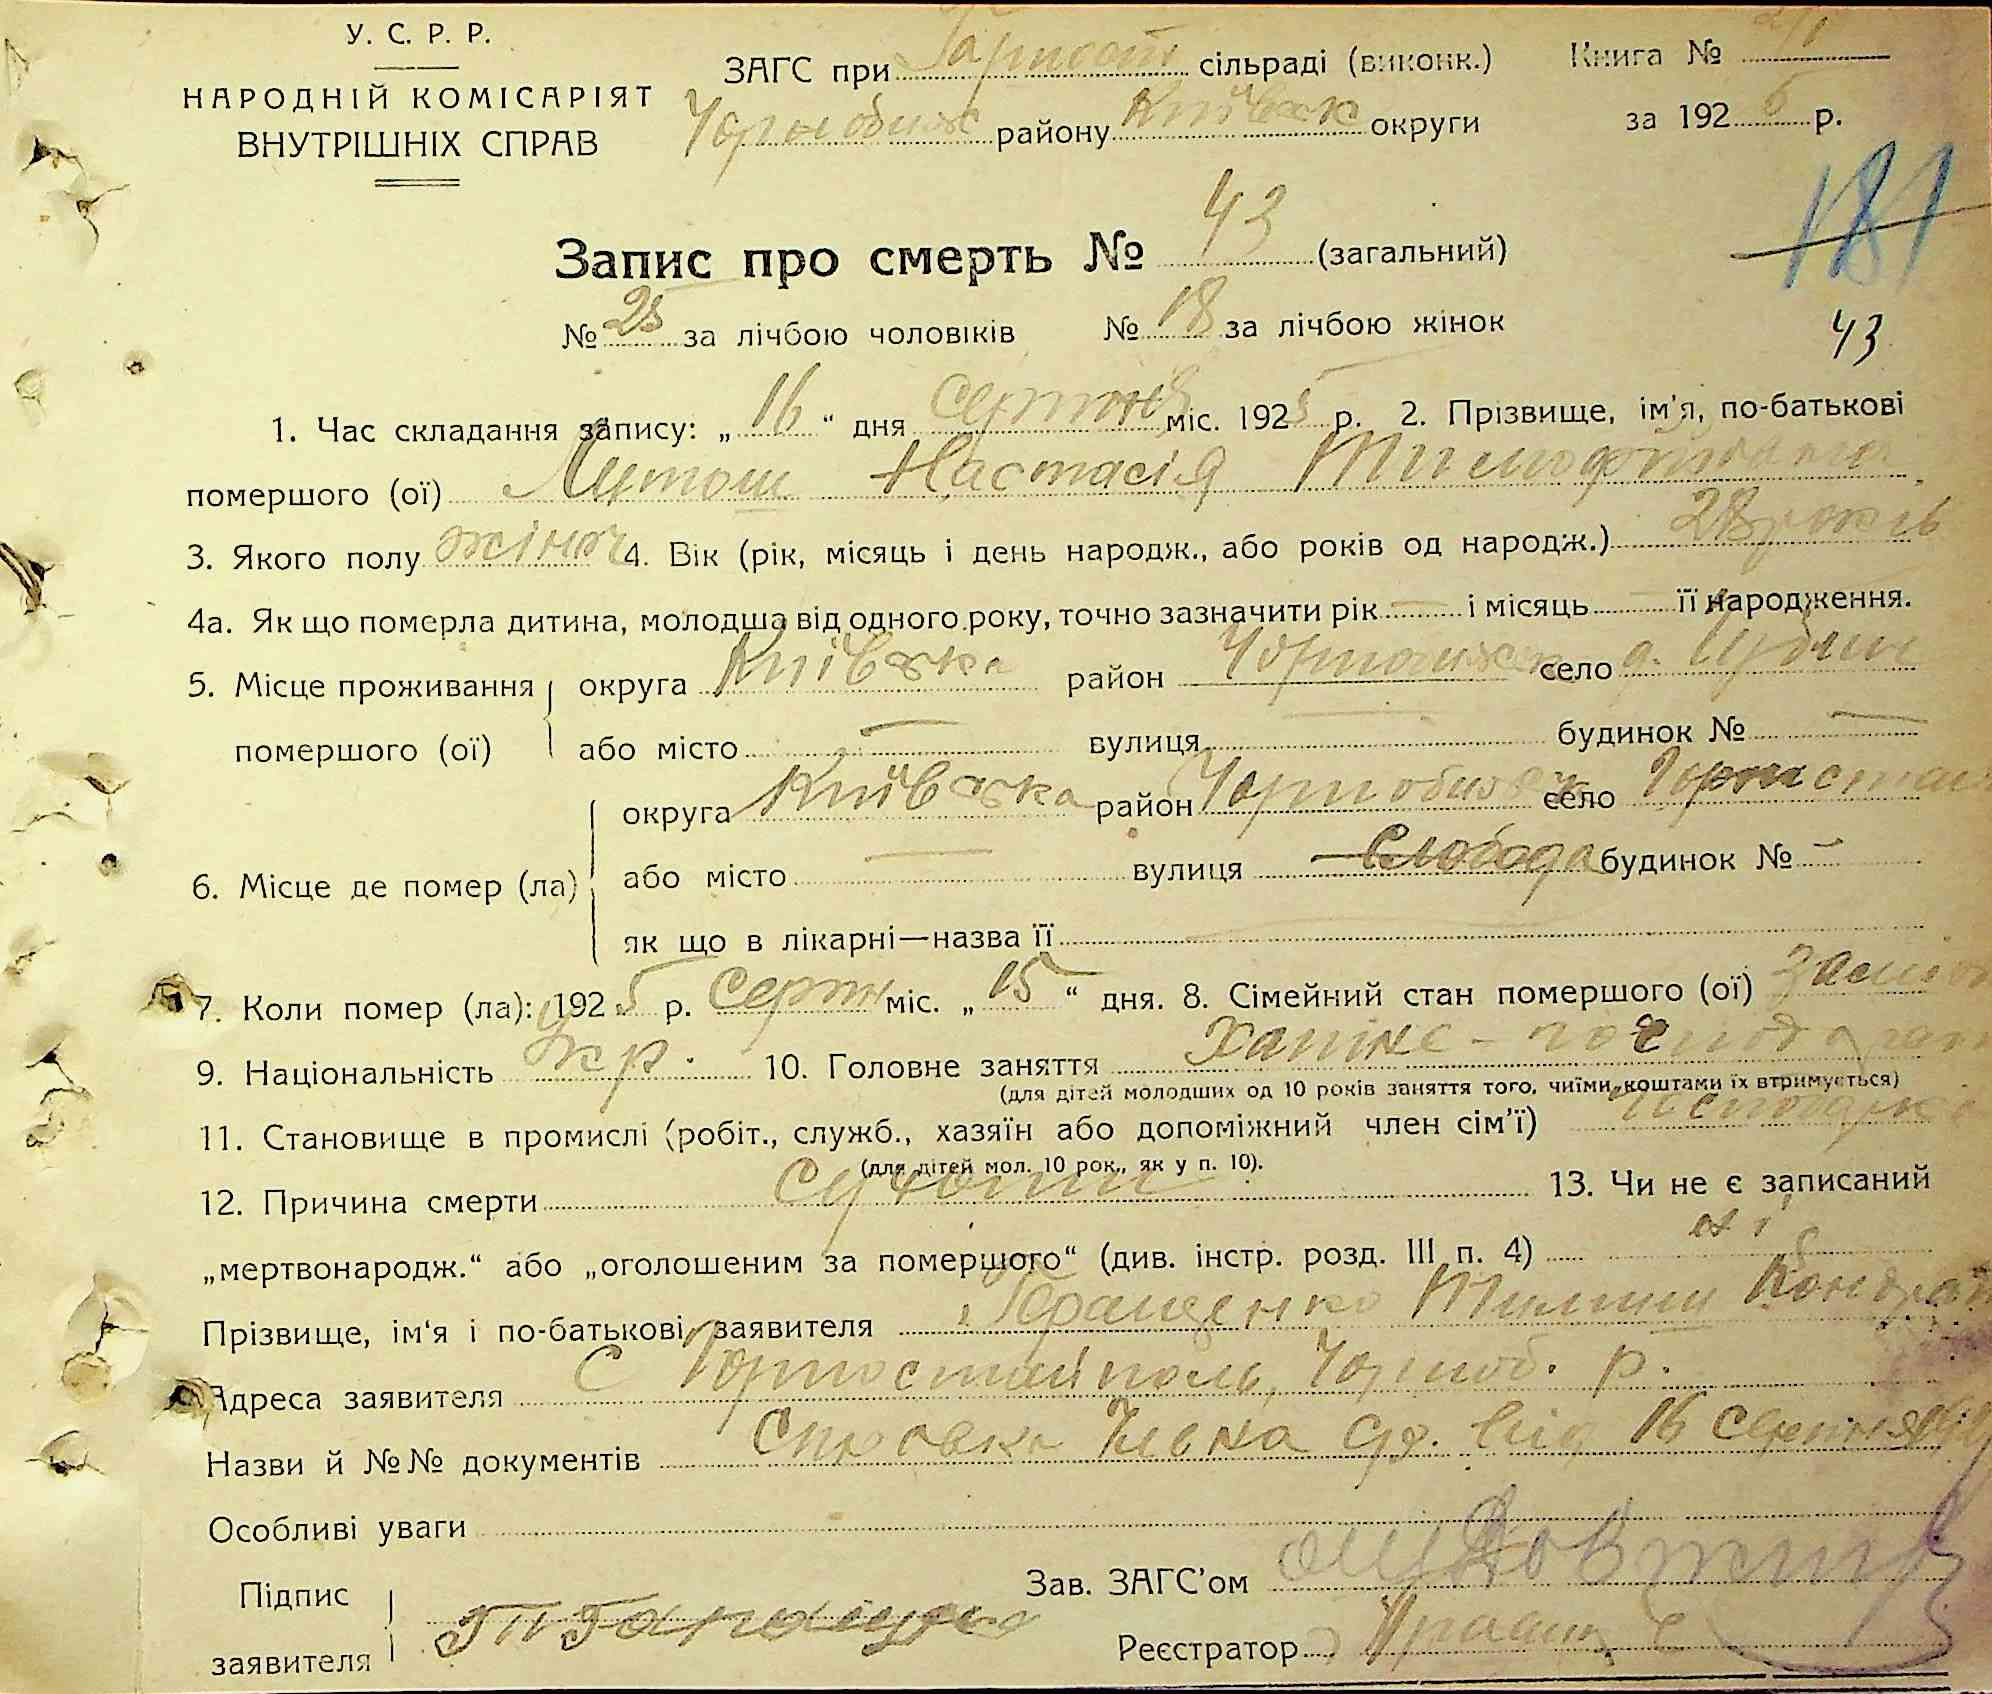 У. С. Р. Р.
НАРОДНІЙ КОМІСАРІЯТ
ВНУТРІШНІХ СПРАВ
ЗАГС при сільраді (виконк.)
Чорнобильс району Київськ округи
Книга №
за 192 р.
181
Запис про смерть № 43 (загальний)
№ 25 за лічбою чоловіків № 18 за лічбою жінок
43
1. Час складання запису: „ 16 “ дня серпня міс. 1925 р. 2. Прізвище, ім'я, по-батькові
помершого (ої) Лутош Настасія Тимофіївна
3. Якого полу жіноч 4. Вік (рік, місяць і день народж., або років од народж.) 28 років
4а. Як що померла дитина, молодша від одного року, точно зазначити рік — і місяць — її народження.
5. Місце проживання помершого (ої) округа Київська район село
або місто — вулиця будинок № —
6. Місце де помер (ла) округа Київська район Чорнобильськ село
або місто — вулиця Слобода будинок № —
як що в лікарні—назва її
7. Коли помер (ла): 1925 р. Серпн міс. „ 15 “ дня. 8. Сімейний стан помершого (ої)
9. Національність Укр. 10. Головне заняття
(для дітей молодших од 10 років заняття того, чиїми коштами їх втримується)
11. Становище в промислі (робіт., служб., хазяїн або допоміжний член сім'ї)
(для дітей мол. 10 рок., як у п. 10).
12. Причина смерти Сухоти 13. Чи не є записаний
„мертвонародж.“ або „оголошеним за помершого“ (див. інстр. розд. III п. 4) ні
Прізвище, ім'я і по-батькові заявителя Кондрат
Адреса заявителя С Горностайполь, Чорноб. р.
Назви й №№ документів Справка від 16 серпня
Особливі уваги
Підпис заявителя
Зав. ЗАГС'ом
Реєстратор